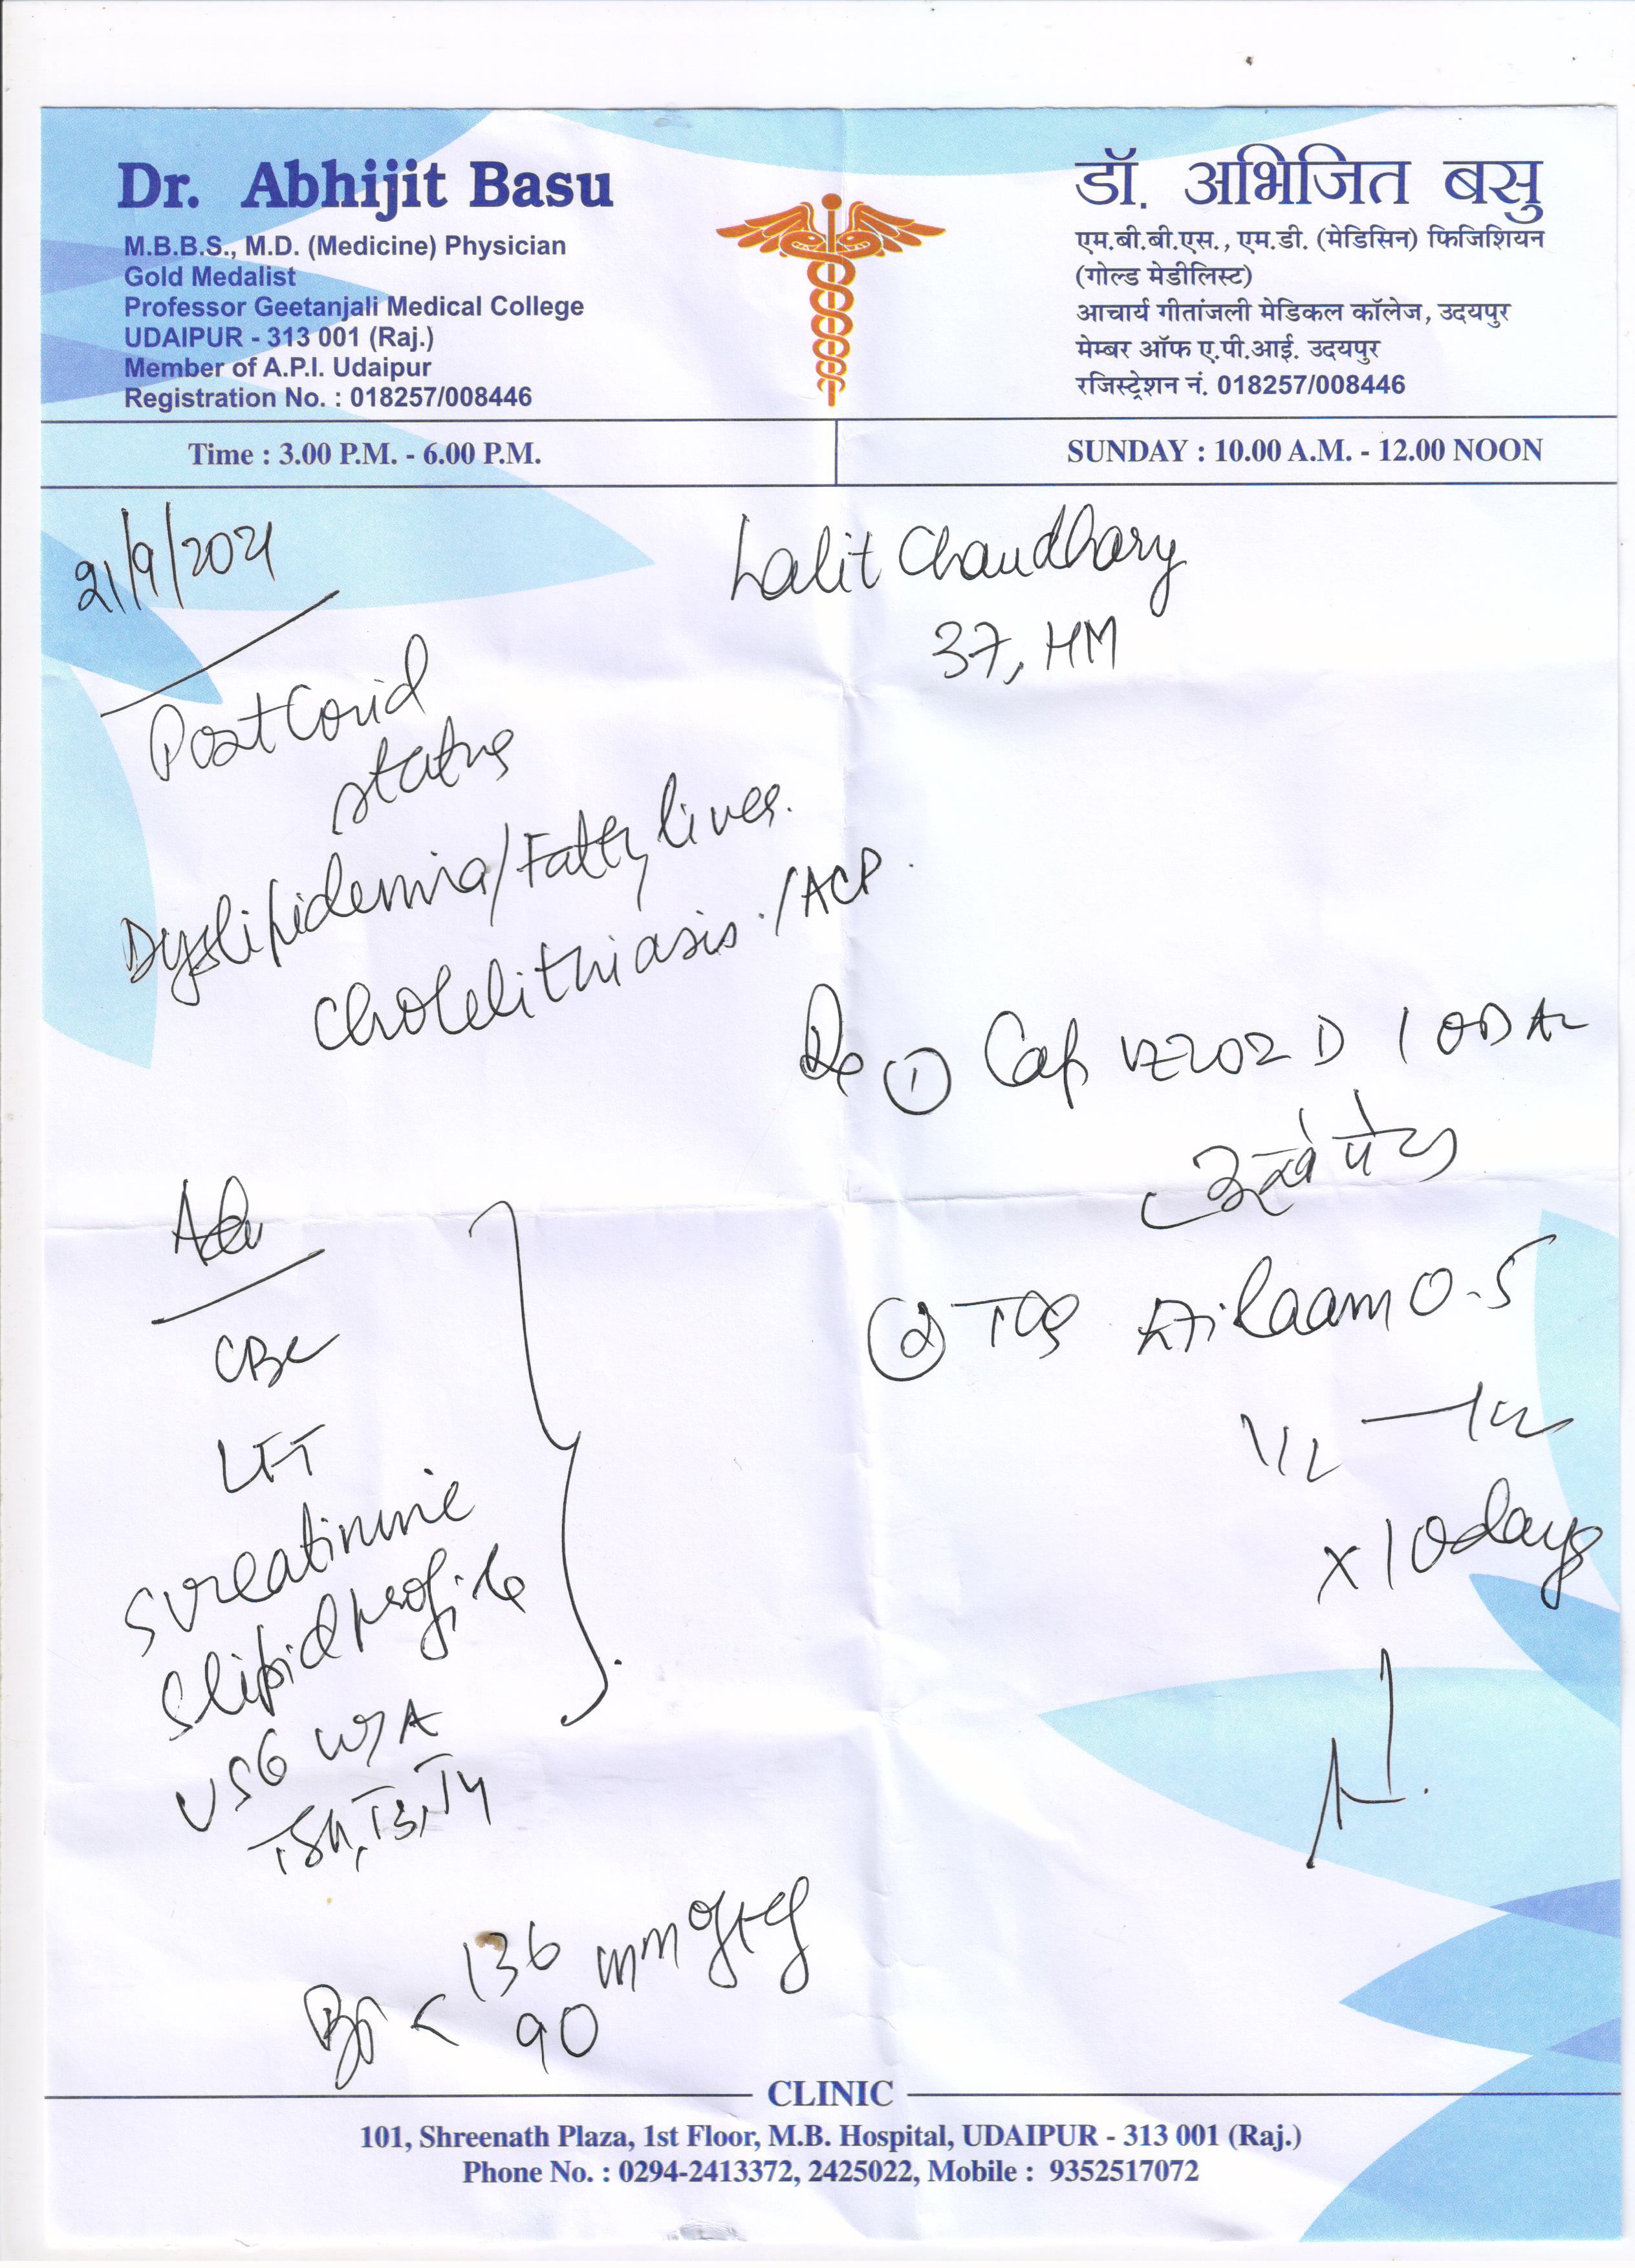 Dr. Abhijit Basu
M.B.B.S., M.D. (Medicine) Physician
Gold Medalist
Professor Geetanjali Medical College
UDAIPUR - 313 001 (Raj.)
Member of A.P.I. Udaipur
Registration No. : 018257/008446
डॉ. अभिजित बसु
एम.बी.बी.एस., एम.डी. (मेडिसिन) फिजिशियन
(गोल्ड मेडीलिस्ट)
आचार्य गीतांजली मेडिकल कॉलेज, उदयपुर
मेम्बर ऑफ ए.पी.आई. उदयपुर
रजिस्ट्रेशन नं. 018257/008446
Time : 3.00 P.M. - 6.00 P.M.
SUNDAY : 10.00 A.M. - 12.00 NOON
21/9/2021
Lalit Chaudhary
37, HM
Post Covid
status
Dyslipidemia/Fatty liver.
Cholelithiasis./ACP.
Rx ① Cap D 1 OD
पेट
② 0.5
1/2
x 10days
Adv
CBC
LFT
S creatinine
S lipid profile
USG W/A
TSH, T3, T4
BP < 136 mm of Hg
90
CLINIC
101, Shreenath Plaza, 1st Floor, M.B. Hospital, UDAIPUR - 313 001 (Raj.)
Phone No. : 0294-2413372, 2425022, Mobile : 9352517072